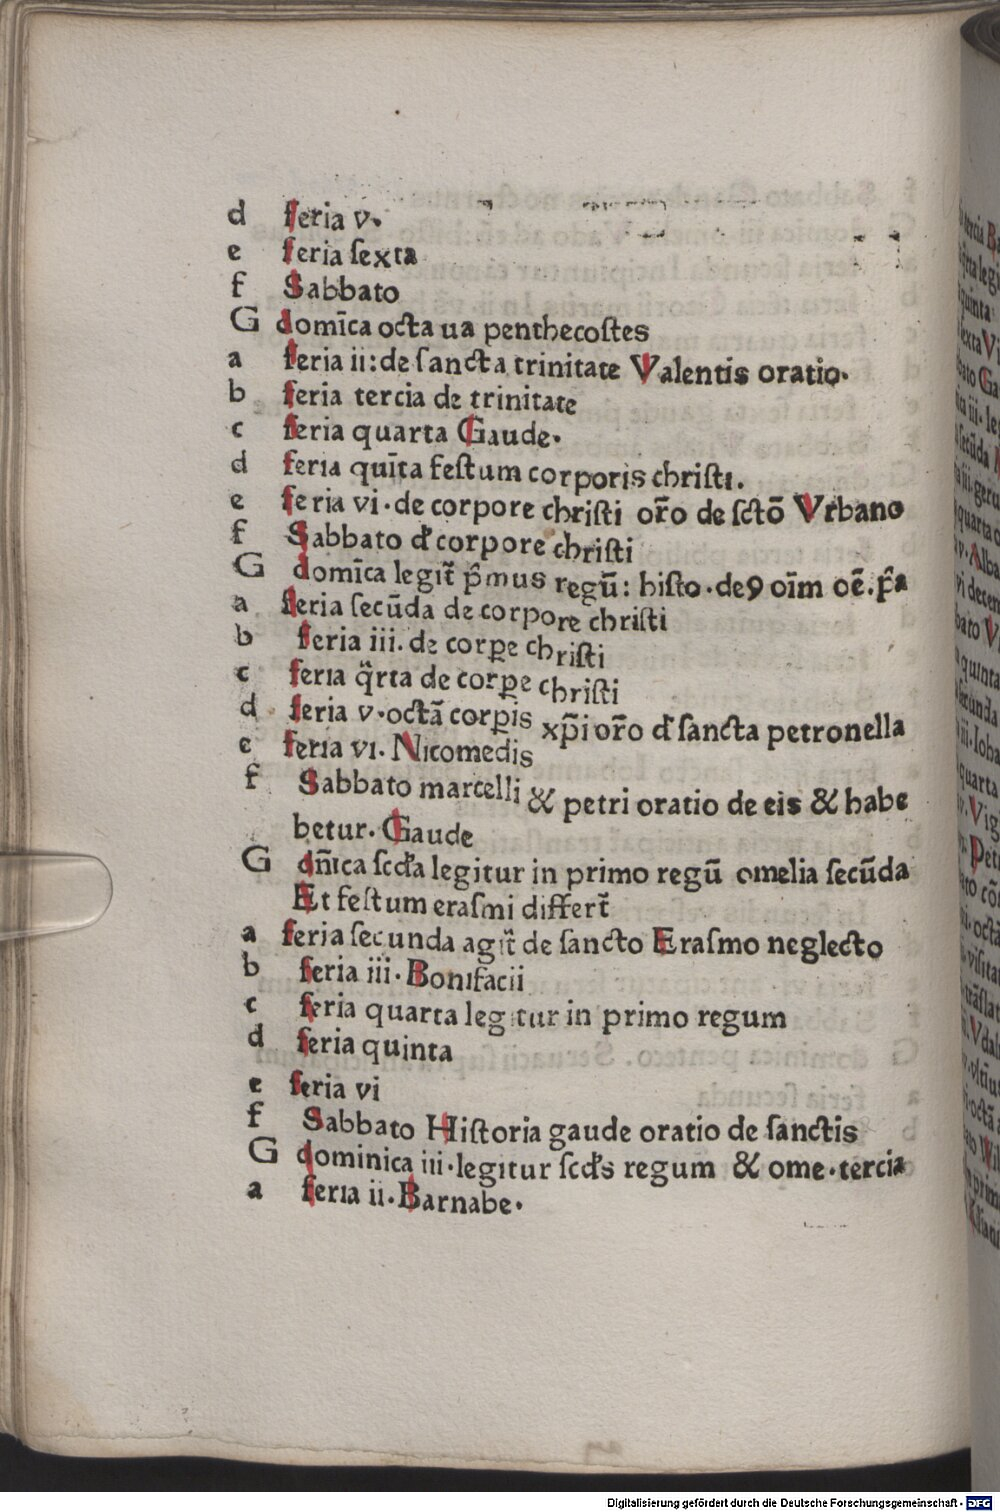 d feria v.
e feria ſexta
f Sabbato
G domīca octa ua penthecoſtes
a feria ii: de ſancta trinitate Valentis oratio.
b feria tercia de trinitate
c feria quarta Gaude.
d feria quīta feſtum corporis chriſti.
e feria vi . de corpore chriſti oro̅ de ſctō Vrbano
f Sabbato d̕ corpore chriſti
G domīca legit̄ p̄mus regū: hiſto . de ꝯ oīm oē . p̄a
a feria ſecūda de corpore chriſti
b feria iii. de corꝑe chriſti
c feria q̄rta de corꝑe chriſti
d feria v . octā corꝑis xp̄i oro̅ d̕ ſancta petronella
e feria vi. Nicomedis
f Sabbato marcelli & petri oratio de eis & habe
betur. Gaude
G dn̄ica ſcd̕a legitur in primo regū omelia ſecūda
Et feſtum eraſmi differt̄
a feria ſecunda agit̄ de ſancto Eraſmo neglecto
b feria iii . Bonifacii
c feria quarta legitur in primo regum
d feria quinta
e feria vi
f Sabbato Hiſtoria gaude oratio de ſanctis
G dominica iii . legitur ſcd̕s regum & ome . tercia
a feria ii . Barnabe.
Digitalisierung gefördert durch die Deutsche Forschungsgemeinschaft - DFG